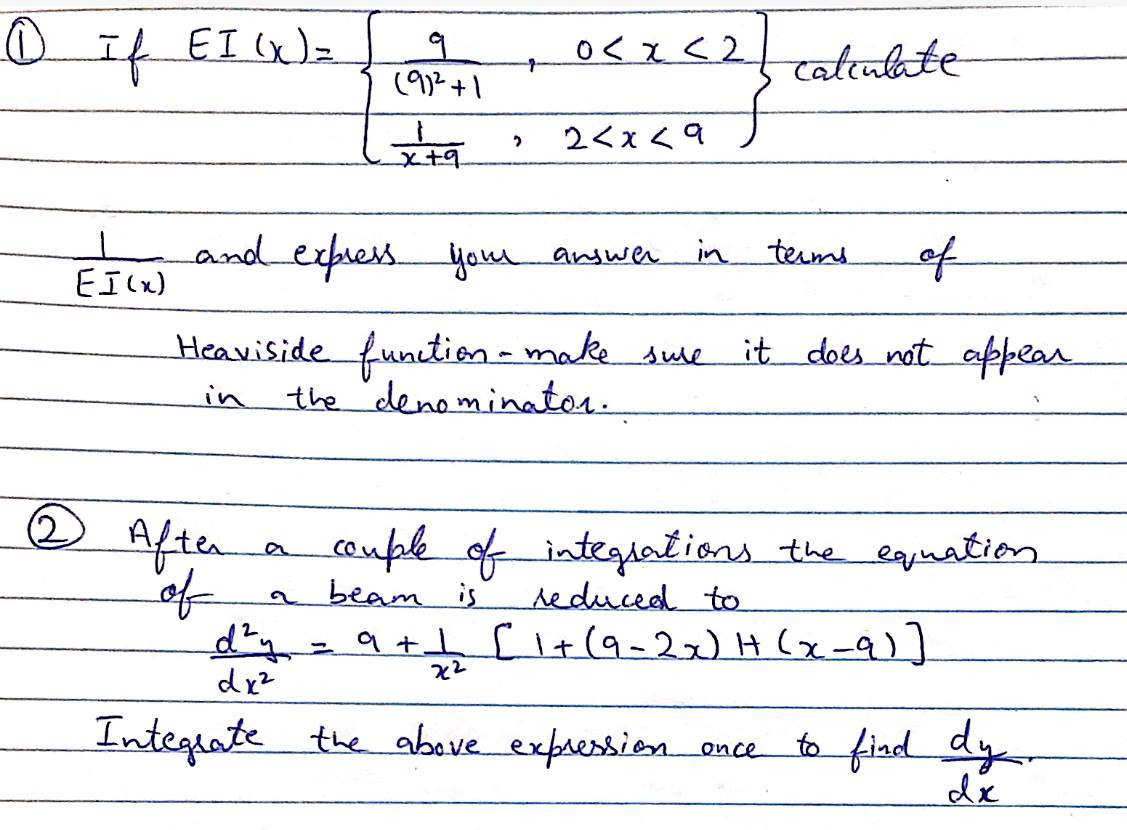 ① If EI(x) = { 9 / ((9)² + 1) , 0 < x < 2 } calculate
1 / (x + 9) , 2 < x < 9
1 / EI(x) and express your answer in terms of
Heaviside function - make sure it does not appear
in the denominator.
② After a couple of integrations the equation
of a beam is reduced to
d²y / dx² = 9 + 1 / x² [ 1 + (9 - 2x) H (x - 9) ]
Integrate the above expression once to find dy / dx.